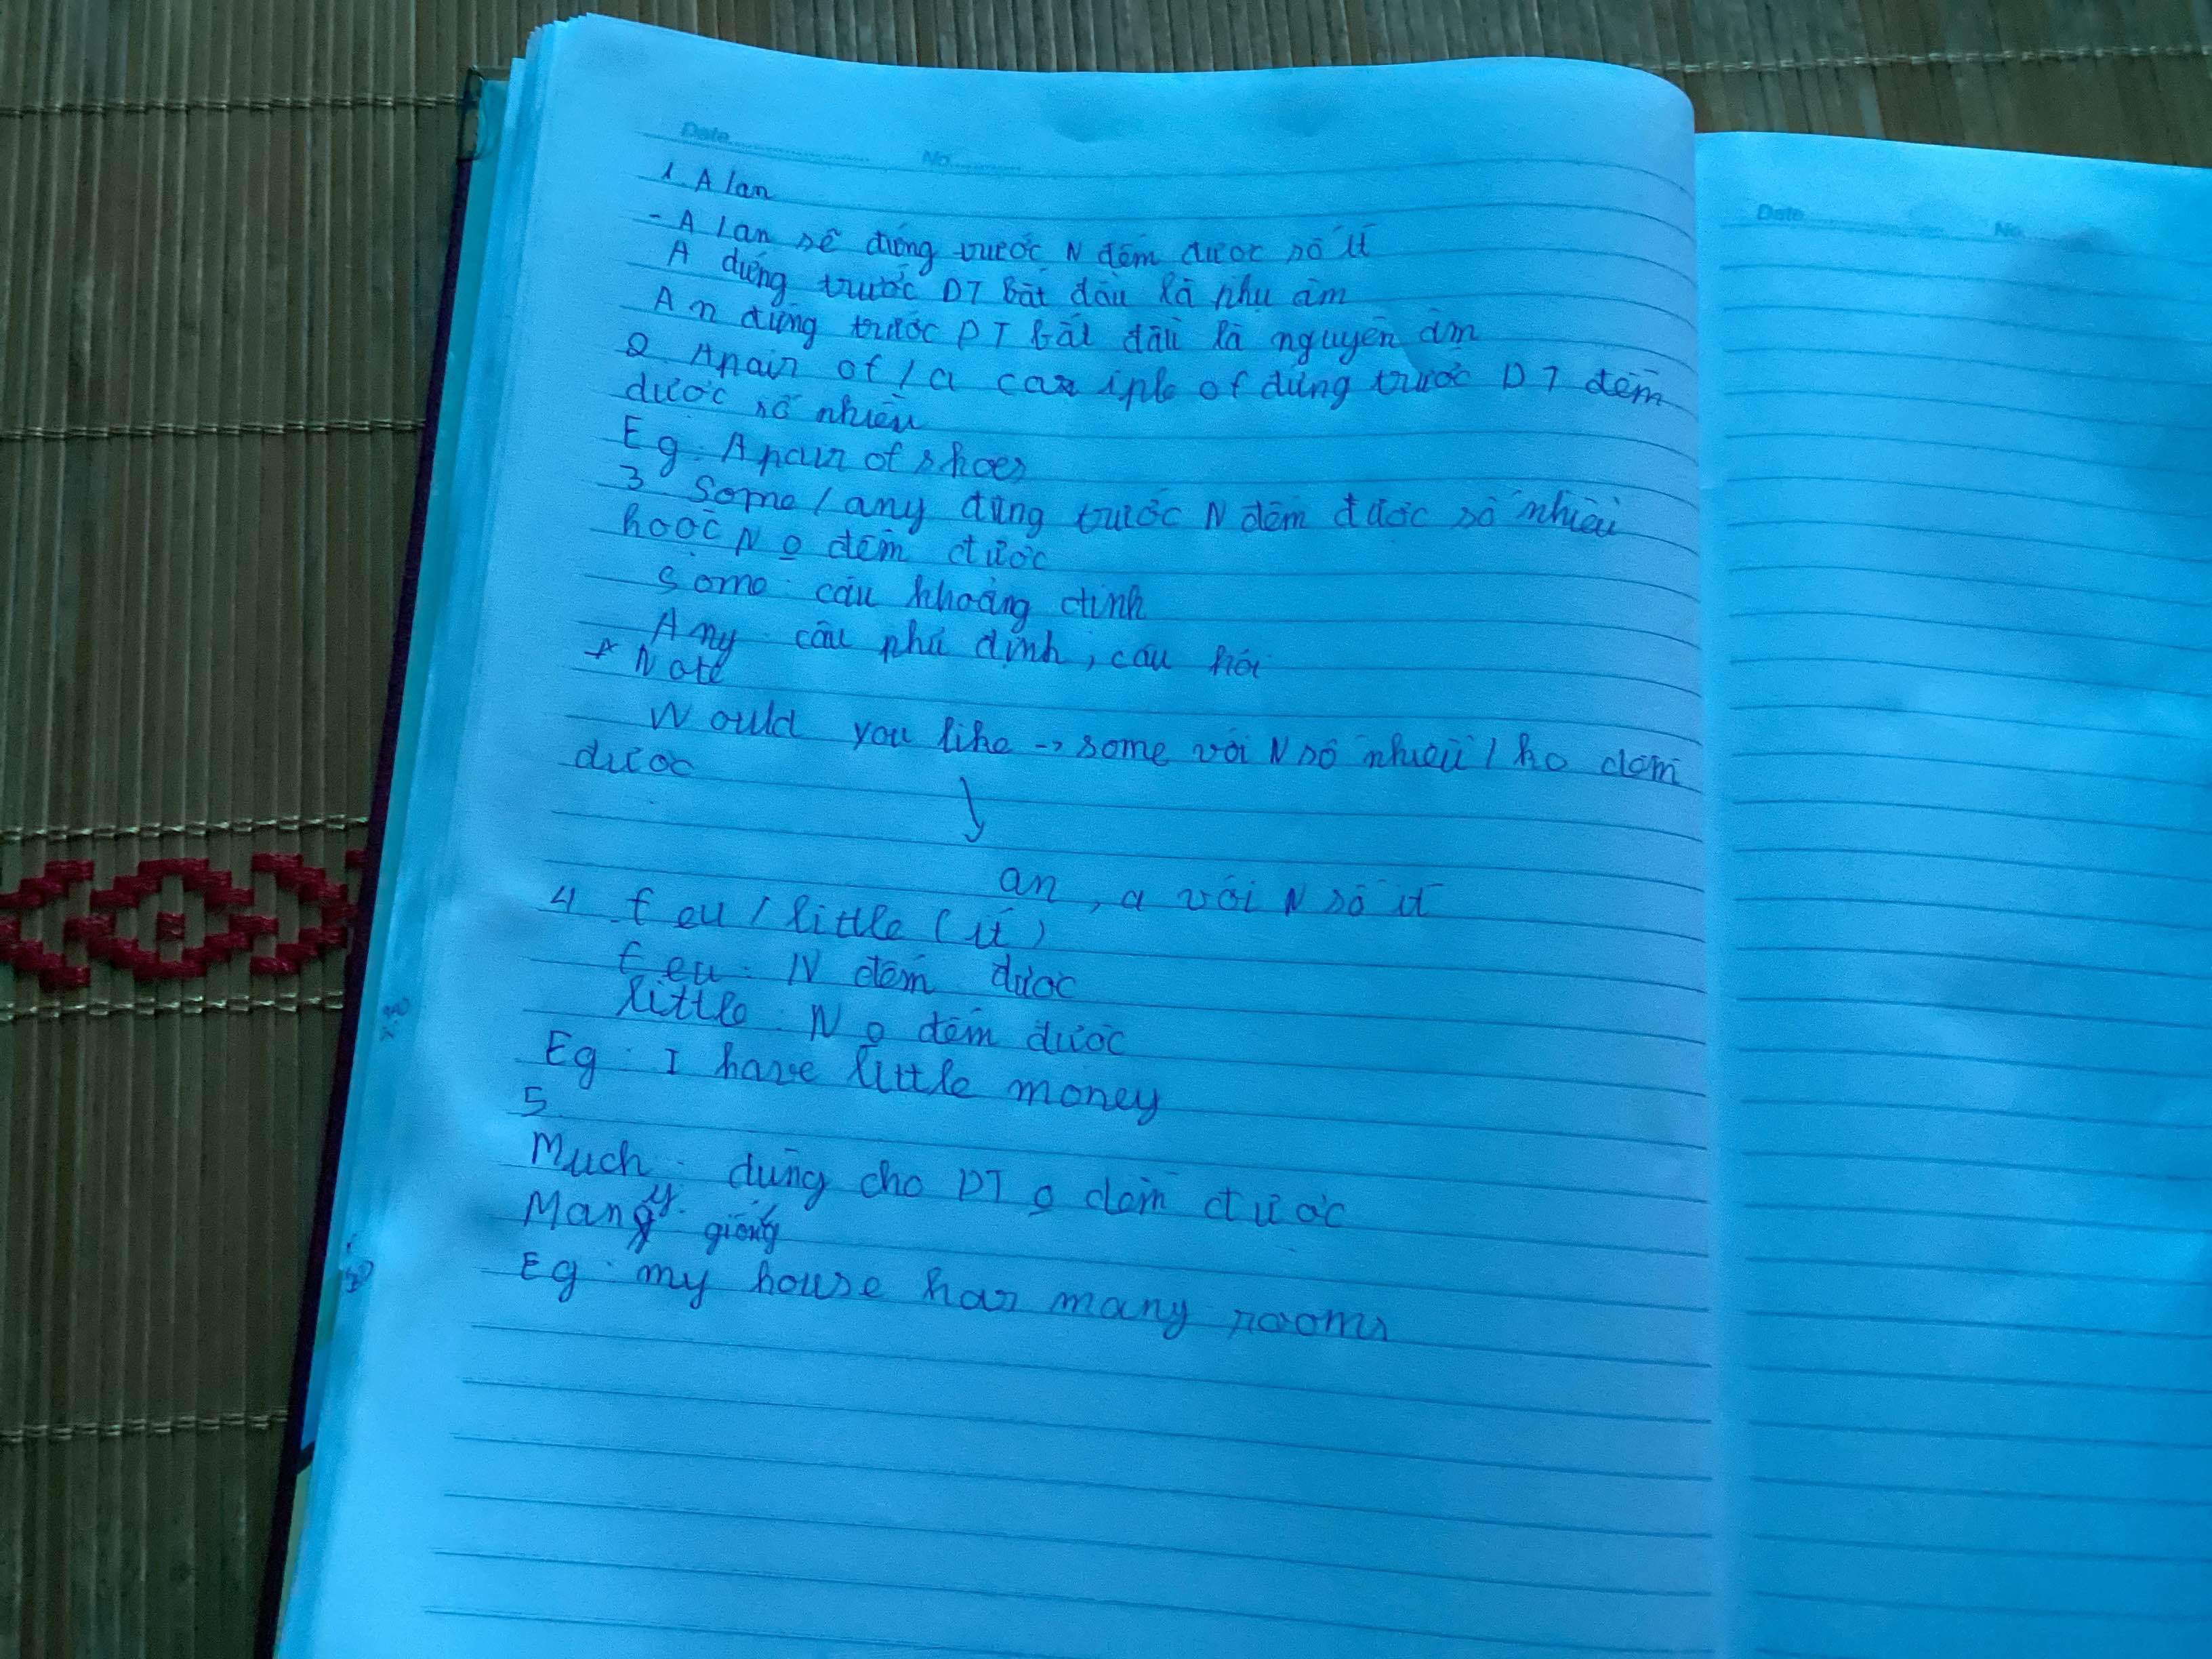 Date No
Date No
1. A/an
- A/an sẽ đứng trước N đếm được số ít
A đứng trước DT bắt đầu là phụ âm
An đứng trước DT bắt đầu là nguyên âm
2. A pair of / a of đứng trước DT đếm
được số nhiều
Eg: A pair of shoes
3 Some / any đứng trước N đếm được số nhiều
hoặc N o đếm được
Some: câu khẳng định
Any: câu phủ định, câu hỏi
* Note
Would you like -> some với N số nhiều / ko đếm
được
an, a với N số ít
4 feu / little (ít)
feu: N đếm được
little: N o đếm được
Eg: I have little money
5
Much: dùng cho DT o đếm được
Many: giống
Eg: my house has many rooms